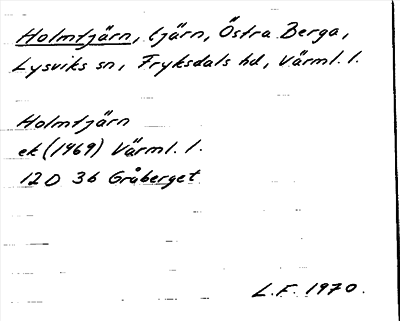 Holmtjärn, tjärn, Östra Berga,
Lysviks sn, Fryksdals hd, Värml. l.
Holmtjärn
ek (1969) Värml. l.
12D 3b Gråberget
L.F. 1970.